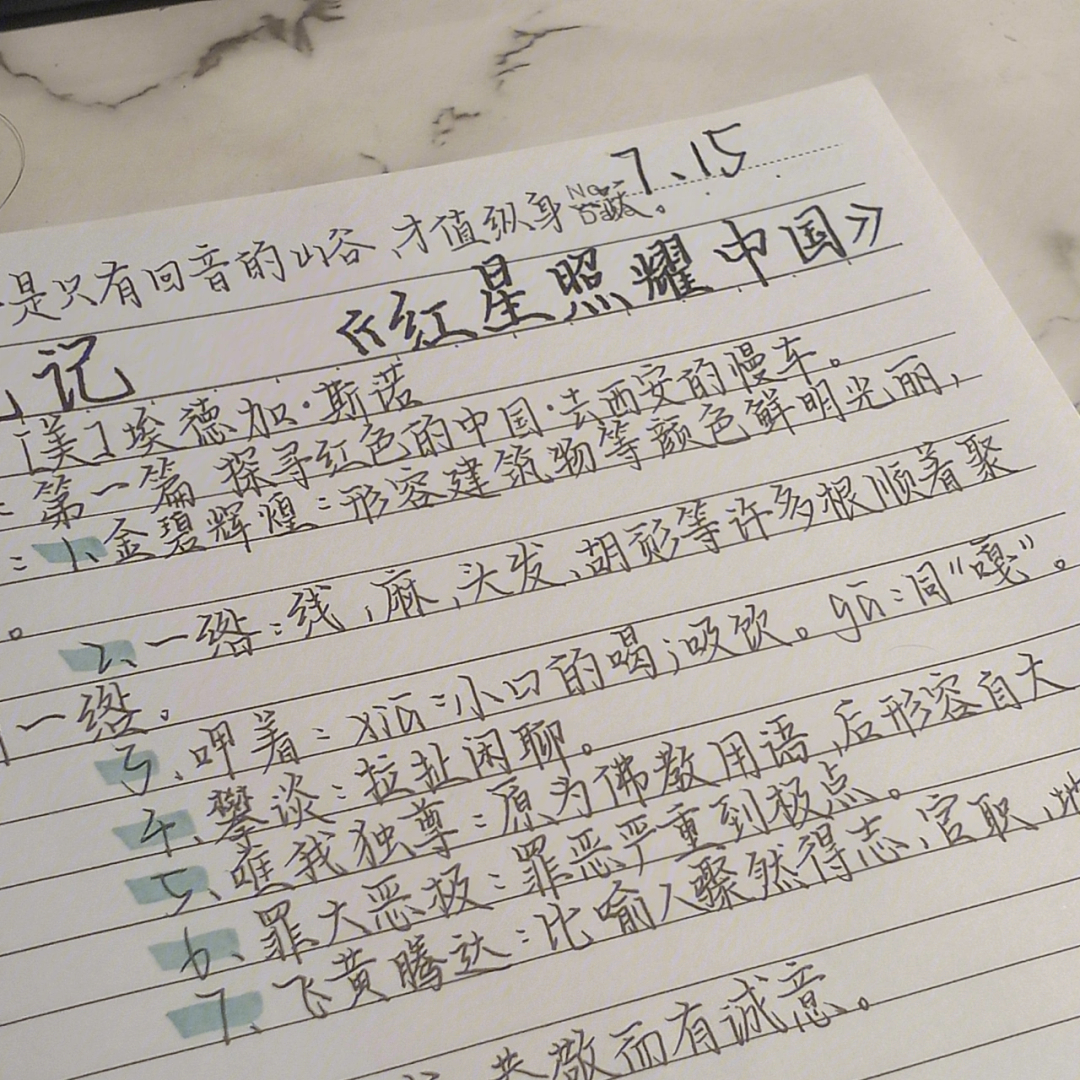 7、15
是只有回音的山谷,才值纵身
记 《红星照耀中国》
[美]埃德加·斯诺
: 第一篇 探寻红色的中国·去西安的慢车。
: 1、金碧辉煌:形容建筑物等颜色鲜明光丽,
。
2、一绺:线,麻,头发、胡形等许多根顺着聚
一绺.
3、呷着:xiā:小口的喝;吸饮。gā:同“嘎”。
4、攀谈:拉扯闲聊。
5、唯我独尊:原为佛教用语,后形容自大
6、罪大恶极:罪恶严重到极点。
7、飞黄腾达:比喻人骤然得志,官职、地
恭敬而有诚意。